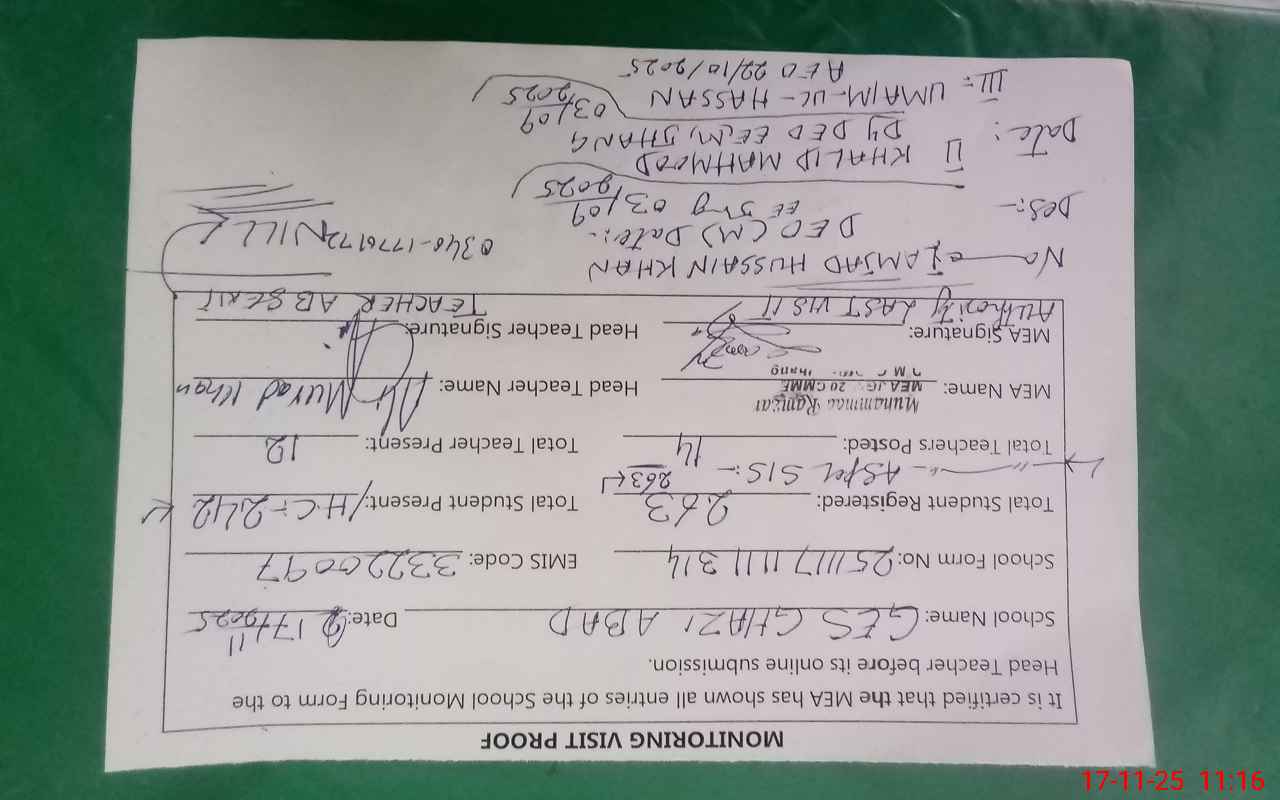 MONITORING VISIT PROOF
It is certified that the MEA has shown all entries of the School Monitoring Form to the
Head Teacher before its online submission.
School Name: GES GHAZI ABAD Date: 17/11/2025
School Form No: 25111711111314 EMIS Code: 33220097
Total Student Registered: 263 Total Student Present: /H.C:- 242
AS per SIS:- 263
Total Teachers Posted: 14 Total Teacher Present: 12
MEA Name: Muhammad Ramzan Head Teacher Name: Murad Khan
MEA JG 20 CMMF
MEA Signature: Head Teacher Signature:
Authority LAST VISIT TEACHER ABSENT
Na I AMJAD HUSSAIN KHAN 0340-1776172 NILL
Des:- DEO (M) Date:-
EE Jhg 03/09 2025
II KHALID MAHMOOD
Date: DY DEO EE, M, JHANG
03/09 2025
III:- UMAIM-UL-HASSAN
AEO 22/10/2025
17-11-25 11:16